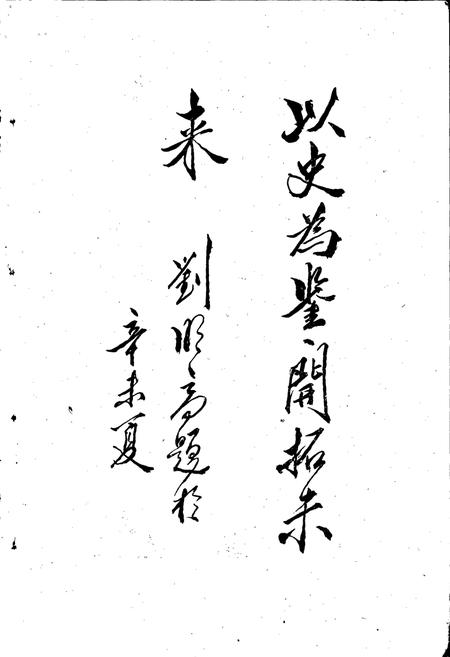 以史為鑒開拓未
来
劉順高題於
辛未夏